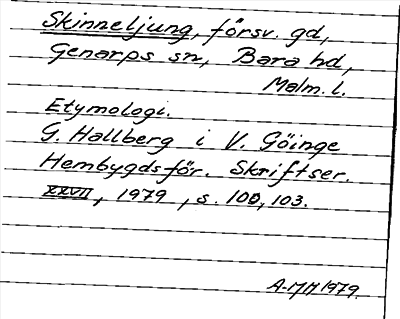 Skinneljung, försv. gd,
Genarps sn, Bara hd,
Malm. l.
Etymologi.
G. Hallberg i V. Göinge
Hembygdsför. Skriftser.
XXVII, 1979, s. 100, 103.
A-MH 1979.